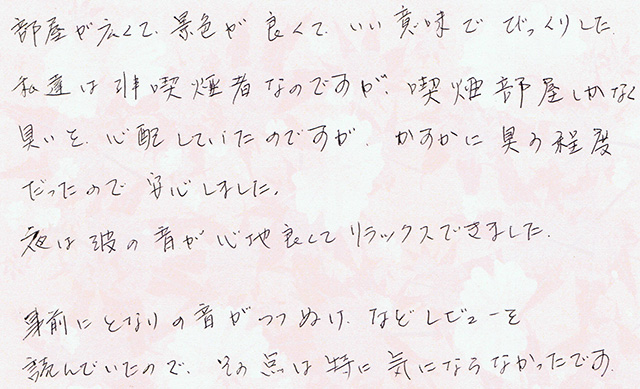 部屋が広くて、景色が良くて、いい意味でびっくりした。
私達は非喫煙者なのですが、喫煙部屋しかなく
臭いを心配していたのですが、かすかに臭う程度
だったので安心しました。
夜は波の音が心地良くてリラックスできました。
事前にとなりの音がつつぬけ、などレビューを
読んでいたので、その点は特に気にならなかったです。